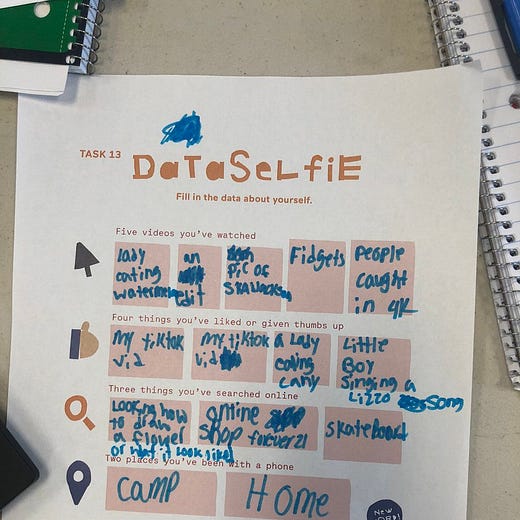 TASK 13
DaTaSeLfiE
Fill in the data about yourself.
Five videos you've watched
lady eating
an edit
pic of
Fidgets
People caught in 4K
Four things you've liked or given thumbs up
my tiktok vid
my tiktok vid
a lady eating
Little Boy singing a Lizzo Song
Three things you've searched online
Looking how to draw a or what it look like
online shop forever21
skateboard
Two places you've been with a phone
camp
Home
New